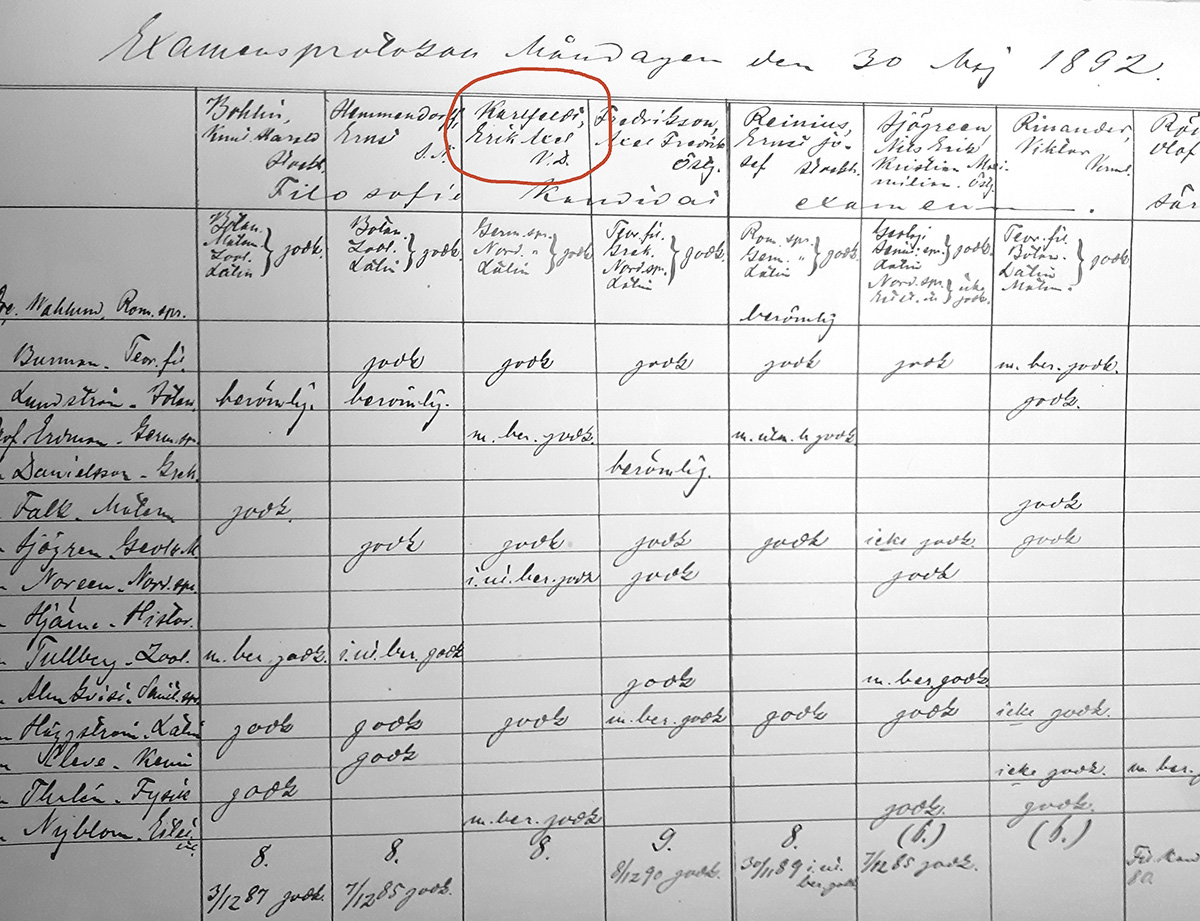 Examensprotokoll Måndagen den 30 Maj 1892.
Bohlin, Knut Harald Stockh.
Hammendorff, Ernst S.N.
Karlfeldt, Erik Axel V.D.
Fredrikson, Axel Fredrik Östg.
Reinius, Ernst Josef Stockh.
Sjögreen Nils Erik Kristian Maximilian. Östg.
Rinander, Viktor Verml.
Olof
Filosofie Kandidat examen.
Botan. Matem. Zool. Latin } godk
Botan. Zool. Latin } godk
Germ. spr. Nord. " Latin } godk
Teor. fil. Grek. Nord. spr. Latin } godk.
Rom. spr. Germ. " Latin } godk.
Geologi Germ. spr. Latin } godk. Nord. spr. } icke godk.
Teor. fil. Botan. Latin Matem. } godk.
Wahlund. Rom. spr. berömlig
Burman. Teor. fil. godk godk godk godk godk m. ber. godk.
Lundström - Botan. berömlig. berömlig. godk.
Prof Erdman - Germ. spr. m. ber. godk. m. utm. b godk
Danielsson - Grek. berömlig.
Falk - Matem godk. godk
Sjögren - Geol. o. M godk godk godk godk icke godk. godk
Noreen - Nord. spr. i. ut. ber. godk godk godk
Hjärne - Histor.
Tullberg - Zool. m. ber. godk. i. ut. ber. godk
Almkvist. Semit. spr. godk m. ber. godk.
Häggström. Latin godk godk godk m. ber. godk godk godk icke godk.
Cleve - Kemi godk icke godk. m. ber.
Thalén - Fysik godk godk. godk.
Nyblom. Estet. etc m. ber. godk
8. 8. 8. 9. 8. (6.) (6.)
3/12 87 godk. 7/12 85 godk. 8/12 90 godk. 30/11 89 i. ut. ber. godk 7/12 85 godk. Fil. Kand